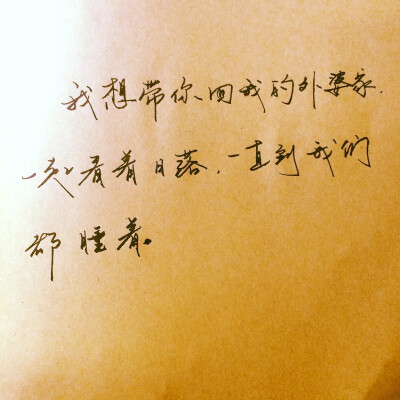 我想带你回我的外婆家,
一起看着日落,一直到我们
都睡着。